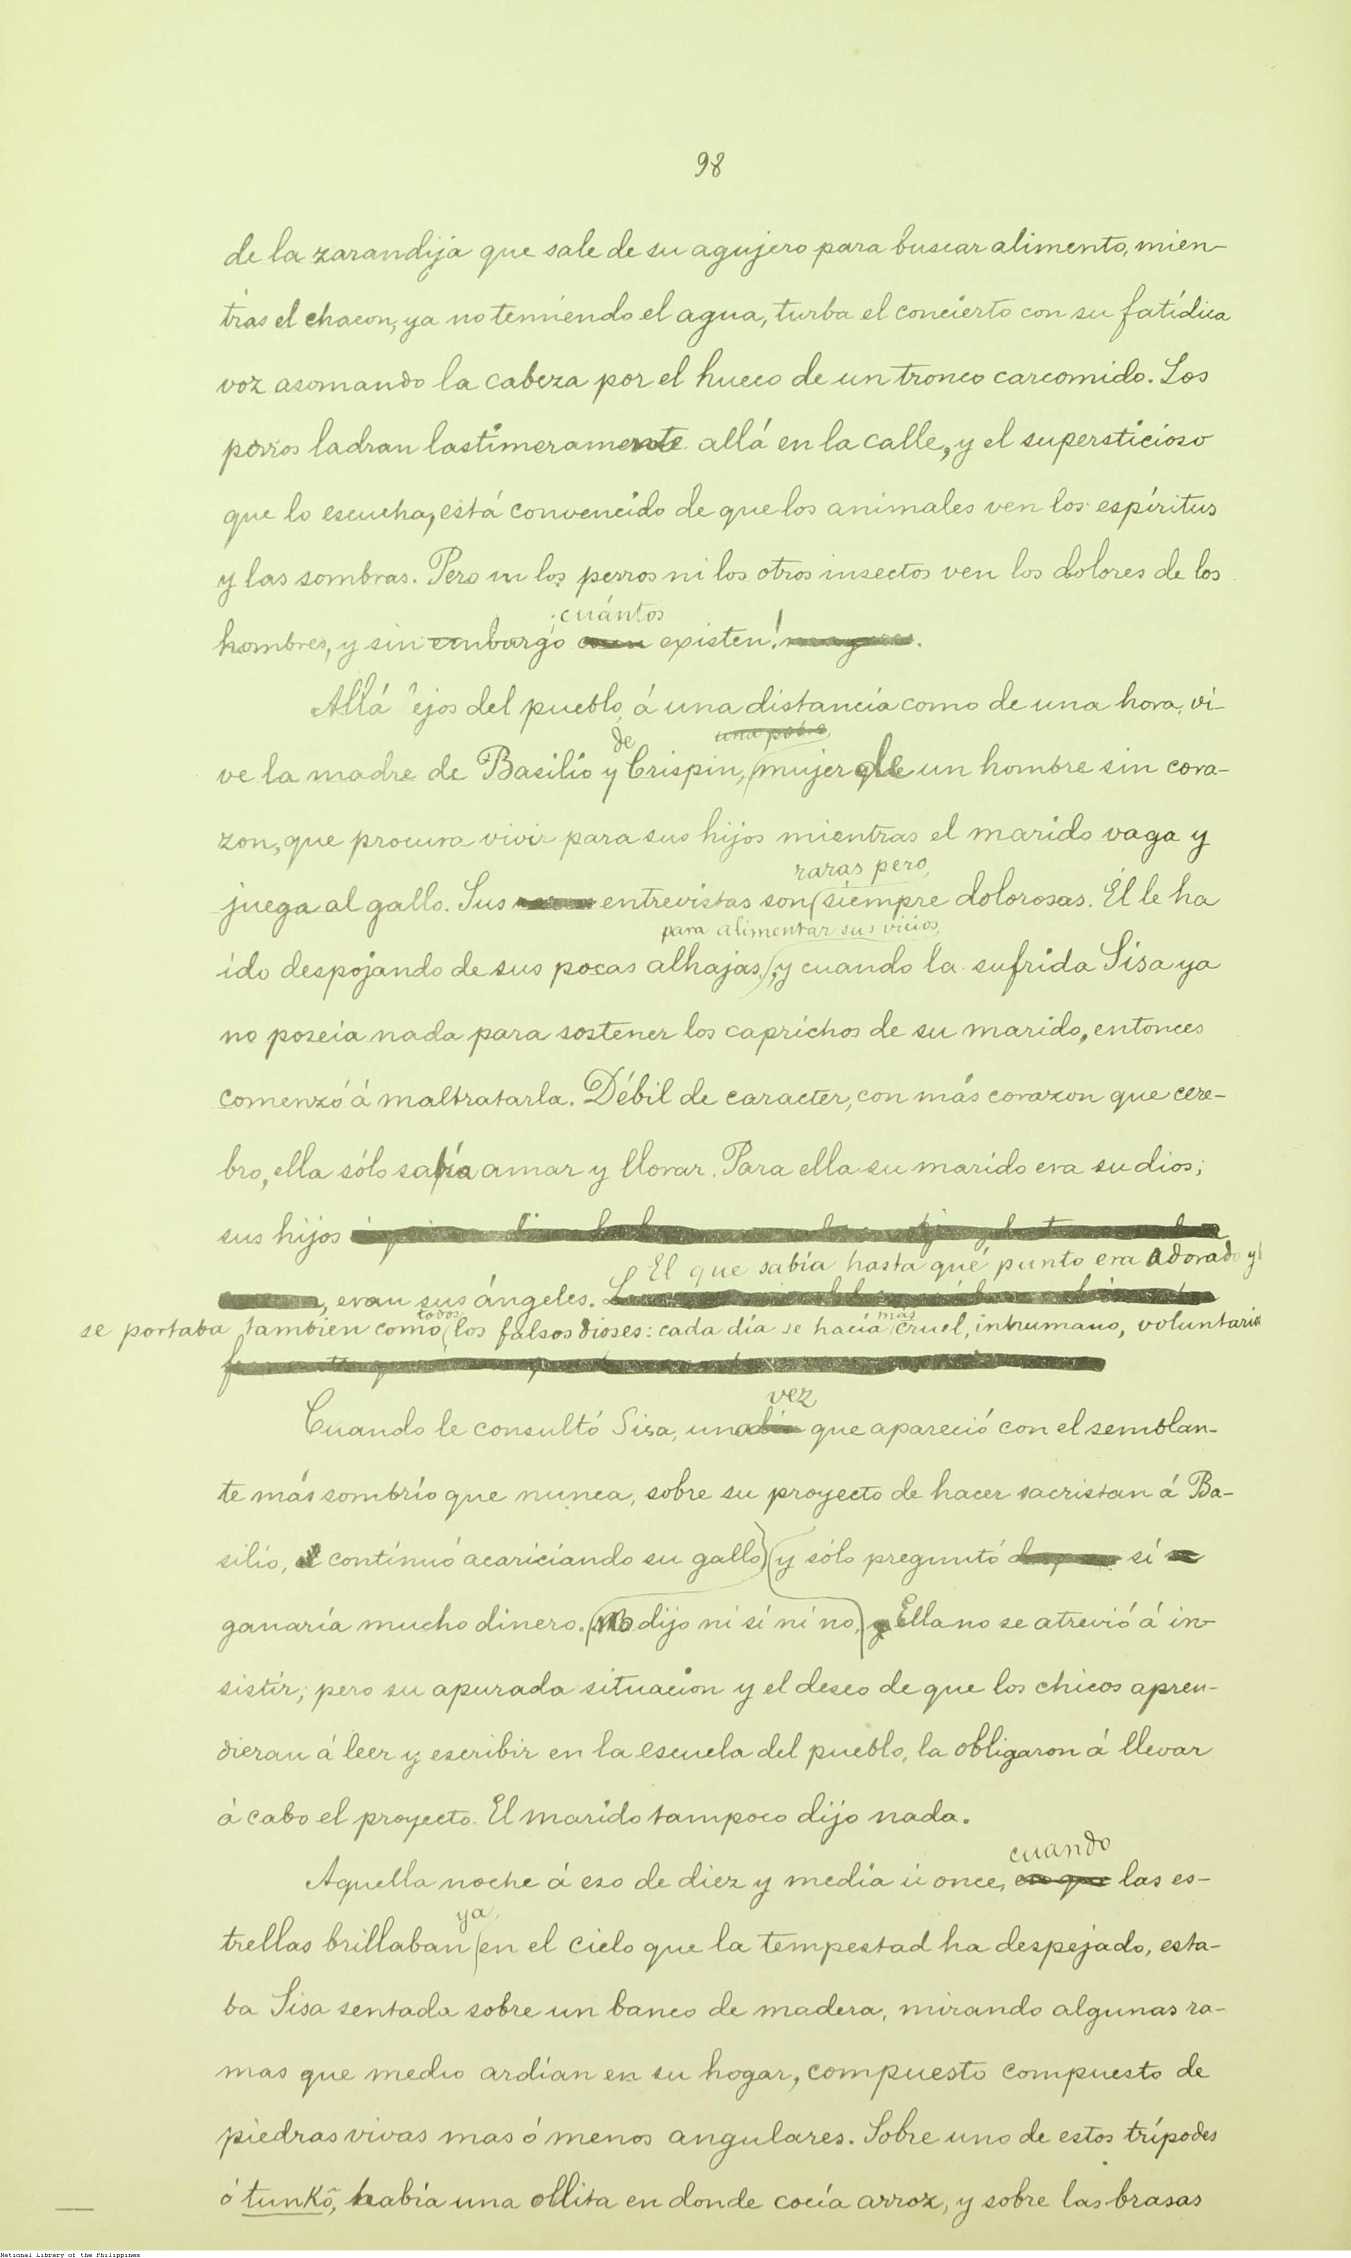 98
de la zarandija que sale de su agujero para buscar alimento, mien-
tras el chacon, ya no temiendo el agua, turba el concierto con su fatídica
voz asomando la cabeza por el hueco de un tronco carcomido. Los
perros ladran lastimeramente allá en la calle, y el supersticioso
que lo escucha, está convencido de que los animales ven los espíritus
y las sombras. Pero ni los perros ni los otros insectos ven los dolores de los
¡cuántos
hombres, y sin embargo existen!
Allá lejos del pueblo, á una distancia como de una hora, vi-
de una pobre
ve la madre de Basilio y Crispin, mujer de un hombre sin cora-
zon, que procura vivir para sus hijos mientras el marido vaga y
raras pero
juega al gallo. Sus entrevistas son siempre dolorosas. Él le ha
para alimentar sus vicios,
ido despojando de sus pocas alhajas, y cuando la sufrida Sisa ya
no poseia nada para sostener los caprichos de su marido, entonces
comenzó á maltratarla. Débil de caracter, con más corazon que cere-
bro, ella sólo sabía amar y llorar. Para ella su marido era su dios;
sus hijos
El que sabía hasta qué punto era adorado y
, eran sus ángeles.
todos más
se portaba tambien como los falsos dioses: cada día se hacía cruel, inhumano, voluntario
vez
Cuando le consultó Sisa, una que apareció con el semblan-
te más sombrío que nunca, sobre su proyecto de hacer sacristan á Ba-
silio, continuó acariciando su gallo y sólo preguntó si
ganaría mucho dinero. No dijo ni sí ni no, Ella no se atrevió á in-
sistir; pero su apurada situacion y el deseo de que los chicos apren-
dieran á leer y escribir en la escuela del pueblo, la obligaron á llevar
á cabo el proyecto. El marido tampoco dijo nada.
cuando
Aquella noche á eso de diez y media ú once, en que las es-
ya
trellas brillaban en el cielo que la tempestad ha despejado, esta-
ba Sisa sentada sobre un banco de madera, mirando algunas ra-
mas que medio ardían en su hogar, compuesto compuesto de
piedras vivas mas ó menos angulares. Sobre uno de estos trípodes
ó tunkô, había una ollita en donde cocía arroz, y sobre las brasas
National Library of the Philippines